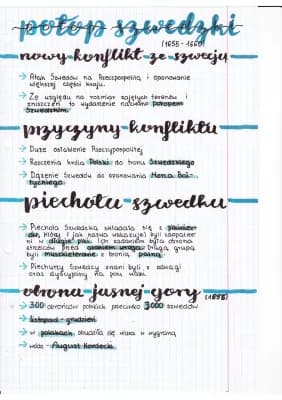 potop szwedzki
(1655 - 1660)
nowy konflikt ze szwecją
→ Atak Szwedów na Rzeczpospolitą i opanowanie
większej części kraju.
→ Ze względu na rozmiar zajętych terenów i
zniszczeń to wydarzenie nazwano potopem
Szwedzkim.
przyczyny konfliktu
→ Duże osłabienie Rzeczypospolitej
→ Roszczenia króla Polski do tronu Szwedzkiego
→ Dążenie Szwedów do opanowania Morza Bał-
tyckiego
piechota szwedzka
→ Piechota Szwedzka składała się z pikinie-
rów, którzy jak nazwa wskazuje byli zaopatrze-
ni w długie piki. Ich zadaniem była obrona
strzelców przed atakiem wroga. Drugą grupą
byli muszkieterowie z bronią palną.
→ Piechurzy Szwedzcy znani byli z odwagi
i dyscypliny na polu walki.
obrona jasnej góry (1655)
→ 300 obrońców polskich przeciwko 3000 szwedów
→ listopad - grudzień
→ w polakach obudziła się wiara w wygraną
→ wódz - Augustyn Kordecki